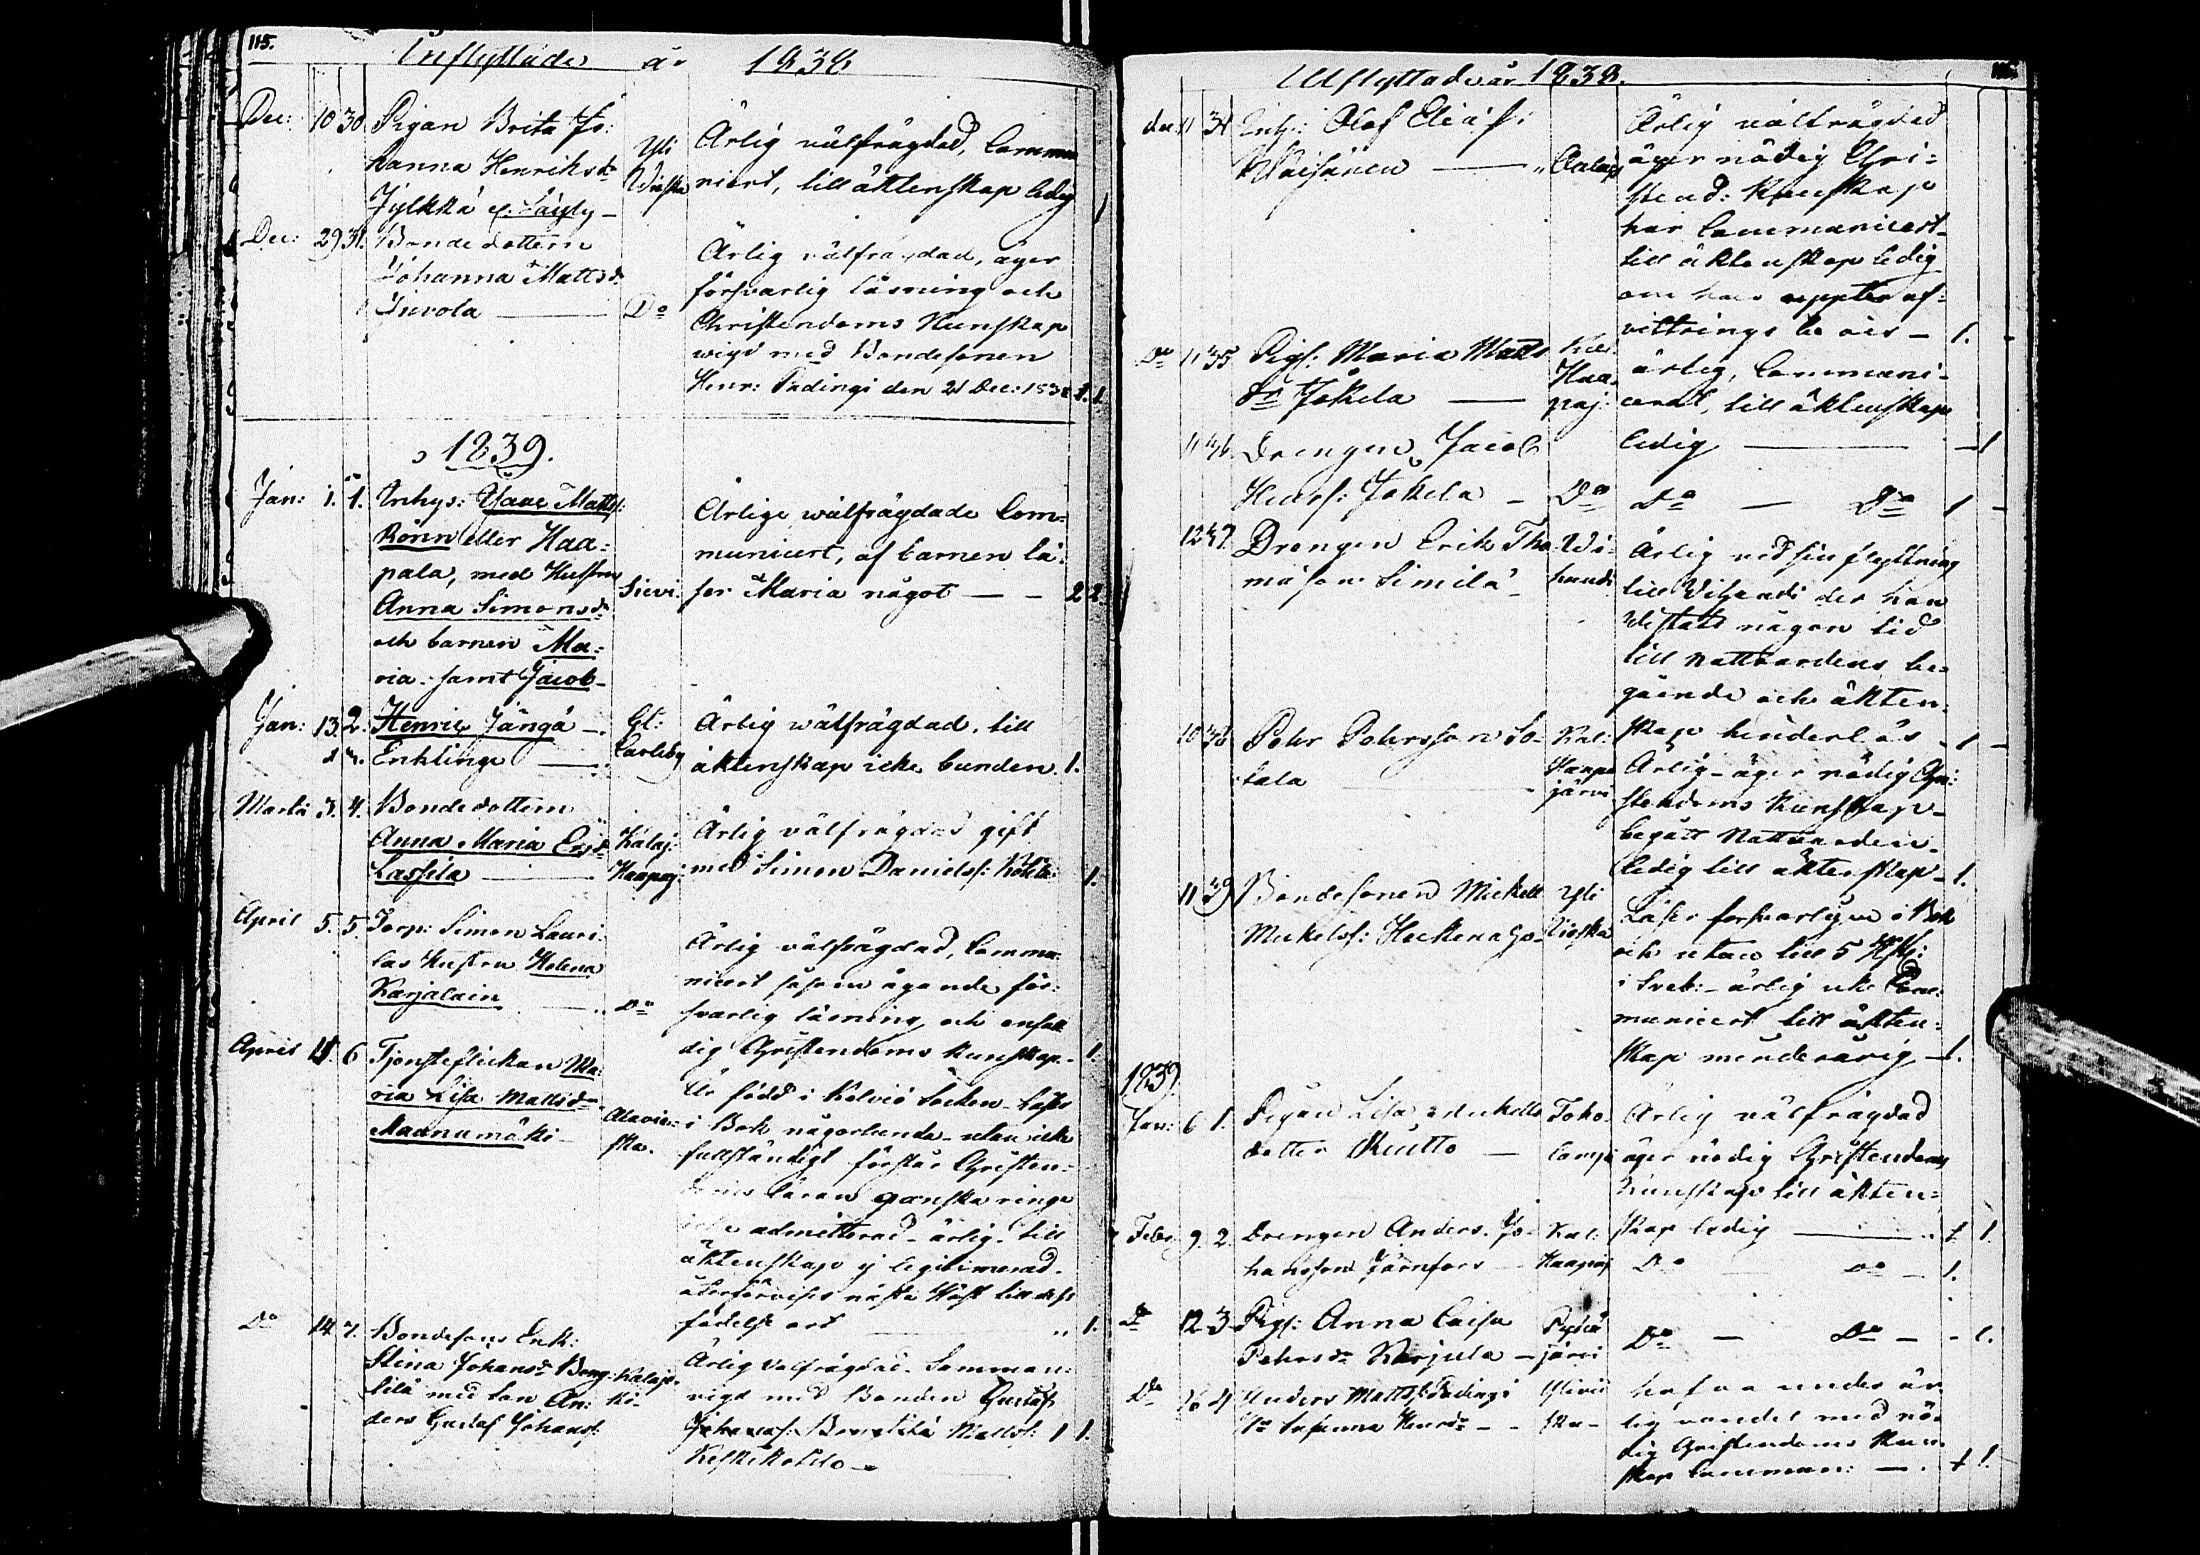 115.
Inflyttade år 1838
Dec: 10 30. Pigan Brita Jo:
hanna Henriksdr
Jylkkä
Yli
Wieska
Ärlig välfrägdad, Commu
nicert, till äktenskap ledig 1
Dec: 29 31. Bonde dottern
Johanna Mattsdr
Juvola — Do
Ärlig välfrägdad, äger
försvarlig läsning och
Christendoms Kunskap
wigd med Bondesonen
Henr: Tudingi den 21 Dec: 1838 1. 1.
1839.
Jan: 1. 1. Inhys: Isaac Mattss:
Rönn eller Haa=
pala, med Hustru
Anna Simonsdr
och barnen Ma=
ria samt Jacob
Sievi
Ärlige, wälfrägdade Com=
municert, af barnen lä=
ser Maria något — — 2 2.
Jan: 13. 2. Henric Jängä —
Enkling —
Gl:
Carleby
Ärlig wälfrägdad, till
äktenskap icke bunden. 1.
Marti 3. 4. Bonde dottern
Anna Maria Ersdr
Lassila —
Kalaj:
Haapaj:
Ärlig välfrägdad gift
med Simon Danielss: 1.
April 5. 5. Torp: Simon Lauri:
las Hustru Helena
Karjalain — Do
Ärlig välfrägdad, Commu
nicert såsom ägande för=
svarlig läsning och enfal
dig Christendoms kunskap - 1.
April 6 Tjensteflickan Ma:
ria Lisa Mattsdr
Maanumäki
Alavie:
ska.
Är född i Kelviå Socken - Läser
i Bok någorlunda - utan icke
fullständigt förstår Christen=
doms läran ganska ringa
icke admitterad - ärlig - till
äktenskap ej legitimerad.
återförvises nästa Höst till dess
födelse ort — 1.
Do 14. 7. Bondesons Enk:
Stina Johansdr Bong:
lilä med son An:
ders Gustaf Johanss:
Kalajo:
ki
Ärlig välfrägdad. Comman:
vigd med Bonden Gustaf
Johanss: Mattss: 1 1.
Keskikolilo —
Utflyttade år 1838.
dec 11 34 Inh: Olof Eliass:
Waisänen — Calaj
Ärlig välfrägdad
äger nödig Chri=
stend: Kunskap
har Communicert
till äktenskap ledig
om han uppter af=
vittrings bevis — 1.
Do 11 35 Pigs: Maria Matts
dr Jokela —
Kal:
Haa=
paj:
ärlig, Communi=
cerat, till äktenskap
ledig — 1
11 36. Drengen Jacob
Henrss: Jokela — Do
Do — Do 1
12 37. Drengen Erik Tho
mason Similä
Wi=
handi
Ärlig vid sin flyttning
till Vihandi der han
vistats någon tid
till Nattvardens be=
gående och äkten=
skap hinderlös - 1 -
10 38 Pehr Pehrsson So=
tala
Kal:
Haapa
järvi
Ärlig - äger nödig Chri:
stendoms Kunskap -
begått Nattvarden -
ledig till äktenskap - 1.
11 39 Bondesonen Mickell
Mickelss:
Yli
vieska
Läser försvarligen i Bok
och utan till 5 Hstj:
i Sveb: - ärlig icke Com:
municert till äkten=
skap minderårig — 1.
1839.
Jan: 6 1. Pigan Lisa Mickells
dotter Rautto —
Toho:
lampi
Ärlig välfrägdad
äger nödig Christendoms
Kunskap till äkten=
skap ledig — 1. 1.
Febr: 9. 2. Drengen Anders Jo=
hansson Järnfors
Kal:
Haapaj
Do Do — 1.
Do 12. 3. Pigs: Anna Caisa
Pehrsdr Karjula —
Pyhä
järvi
Do — Do — 1.
Do 26 4 Anders Mattss: Tudingi
Susanna Henrsdr —
Ylivie
ska
hafva under är
lig vandel med nö=
dig Christendoms Kun
skap Commun: — 1 1.